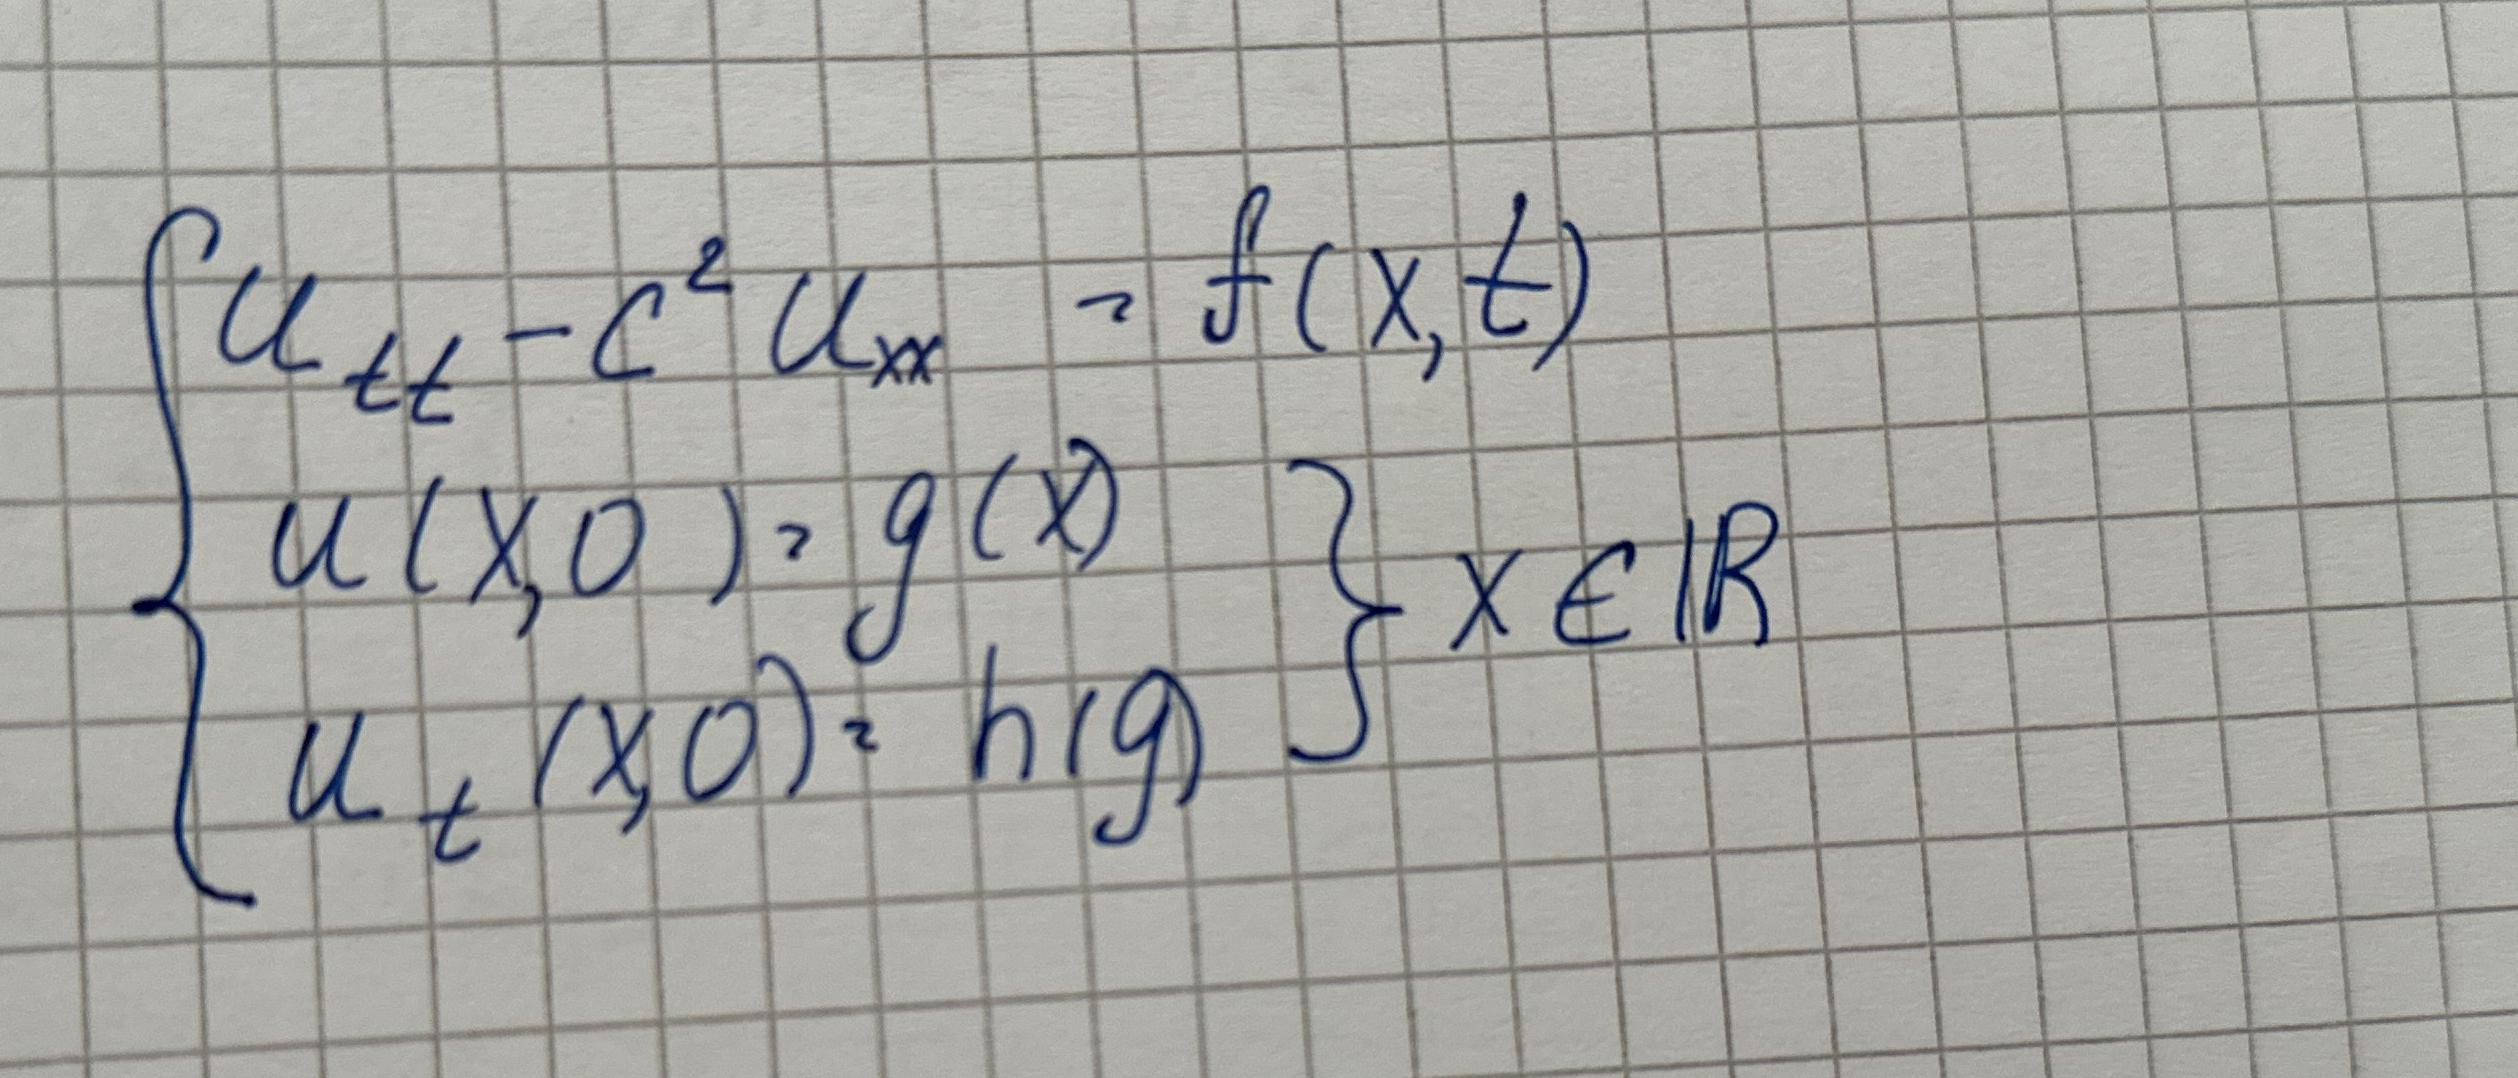 u_tt - c² u_xx = f(x,t)
u(x,0) = g(x)
} x ∈ ℝ
u_t(x,0) = h(g)